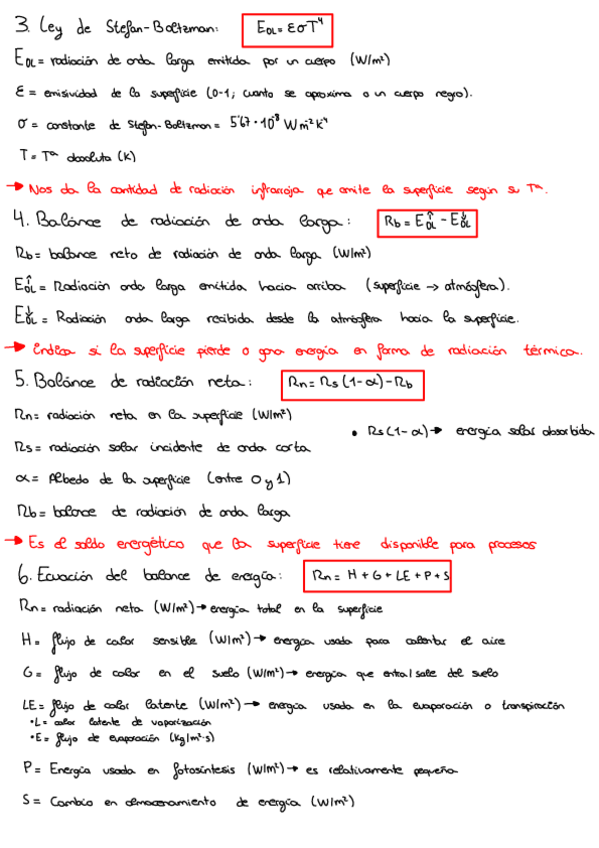 3. Ley de Stefan-Boltzman: EOL = εσT⁴
EOL = radiación de onda larga emitida por un cuerpo (W/m²)
ε = emisividad de la superficie (0-1, cuanto se aproxima a un cuerpo negro).
σ = constante de Stefan-Boltzman = 5'67·10⁻⁸ W m⁻² K⁴
T = Tª absoluta (K)
→ Nos da la cantidad de radiación infrarroja que emite la superficie según su Tª.
4. Balance de radiación de onda larga: Rb = E↑OL - E↓OL
Rb = balance neto de radiación de onda larga (W/m²)
E↑OL = Radiación onda larga emitida hacia arriba (superficie → atmósfera).
E↓OL = Radiación onda larga recibida desde la atmósfera hacia la superficie.
→ Indica si la superficie pierde o gana energía en forma de radiación térmica.
5. Balance de radiación neta: Rn = Rs (1-α) - Rb
Rn = radiación neta en la superficie (W/m²)
• Rs (1-α) → energía solar absorbida
Rs = radiación solar incidente de onda corta
α = Albedo de la superficie (entre 0 y 1)
Rb = balance de radiación de onda larga
→ Es el saldo energético que la superficie tiene disponible para procesos
6. Ecuación del balance de energía: Rn = H + G + LE + P + S
Rn = radiación neta (W/m²) → energía total en la superficie
H = flujo de calor sensible (W/m²) → energía usada para calentar el aire
G = flujo de calor en el suelo (W/m²) → energía que entra/sale del suelo
LE = flujo de calor latente (W/m²) → energía usada en la evaporación o transpiración
•L = calor latente de vaporización
•E = flujo de evaporación (kg/m²·s)
P = Energía usada en fotosíntesis (W/m²) → es relativamente pequeña
S = Cambio en almacenamiento de energía (W/m²)